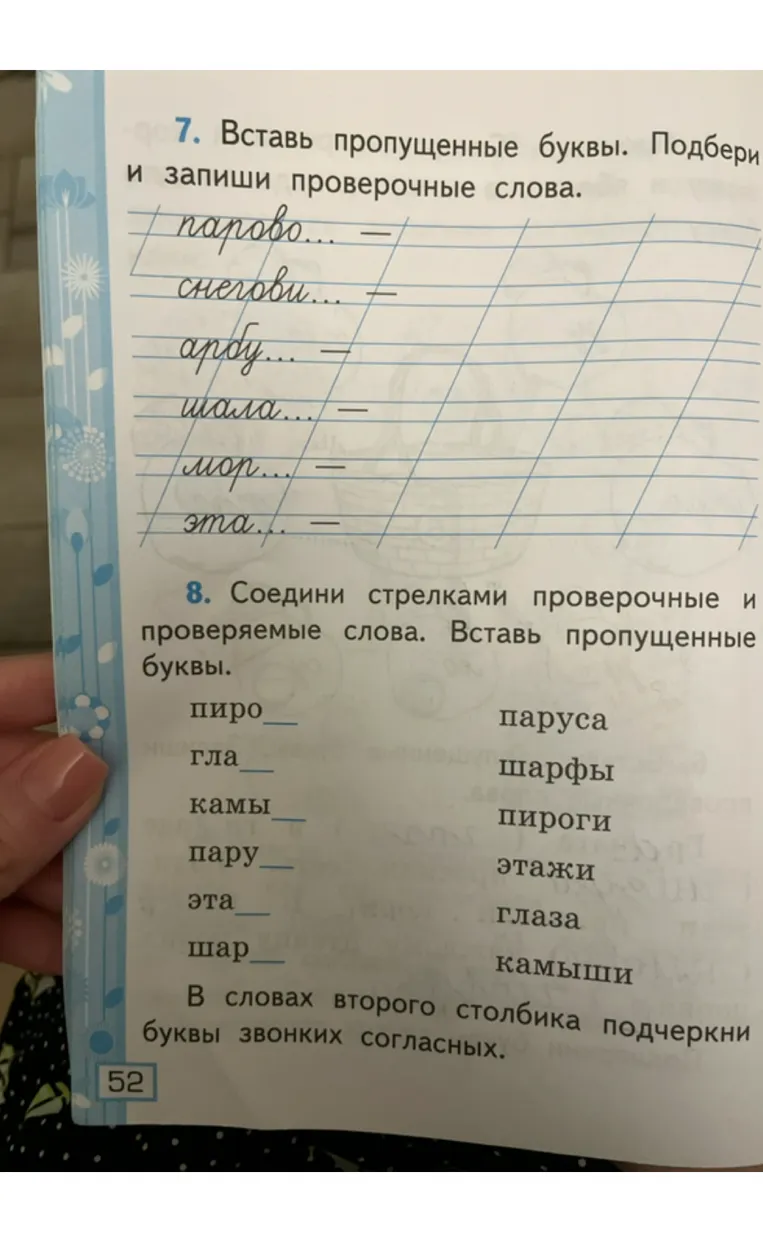 7. Вставь пропущенные буквы. Подбери
и запиши проверочные слова.
парово... —
снегови... —
арбу... —
шала... —
мор... —
эта... —
8. Соедини стрелками проверочные и
проверяемые слова. Вставь пропущенные
буквы.
пиро__ паруса
гла__ шарфы
камы__ пироги
пару__ этажи
эта__ глаза
шар__ камыши
В словах второго столбика подчеркни
буквы звонких согласных.
52